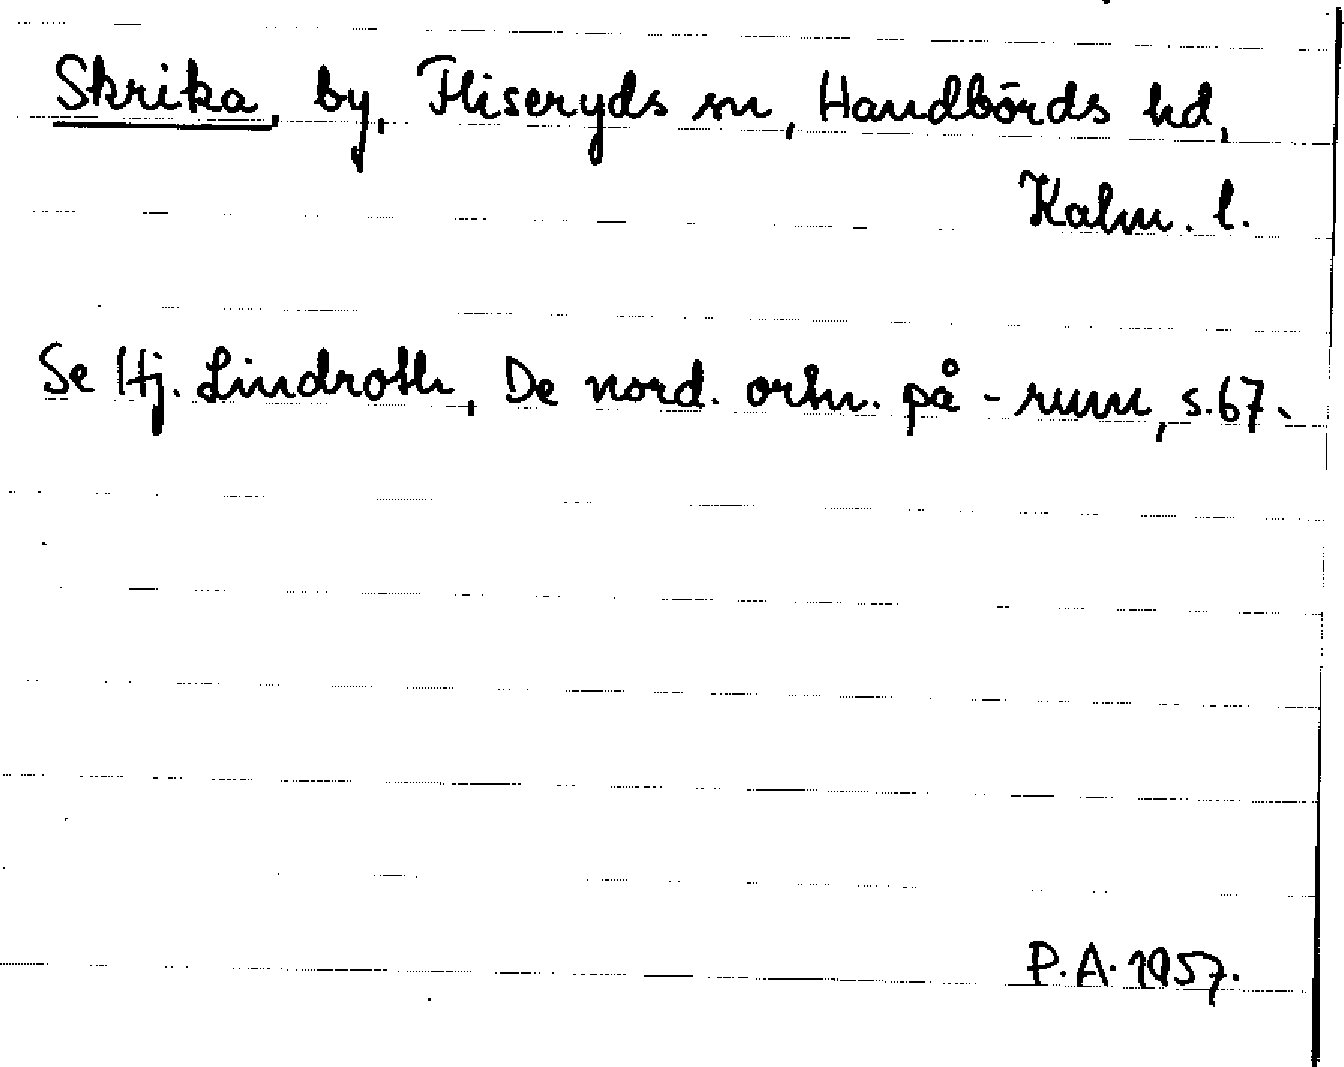 Skrika, by, Fliseryds sn, Handbörds hd,
Kalm. l.
Se Hj. Lindroth, De nord. ortn. på -rum, s. 67.
P.A. 1957.